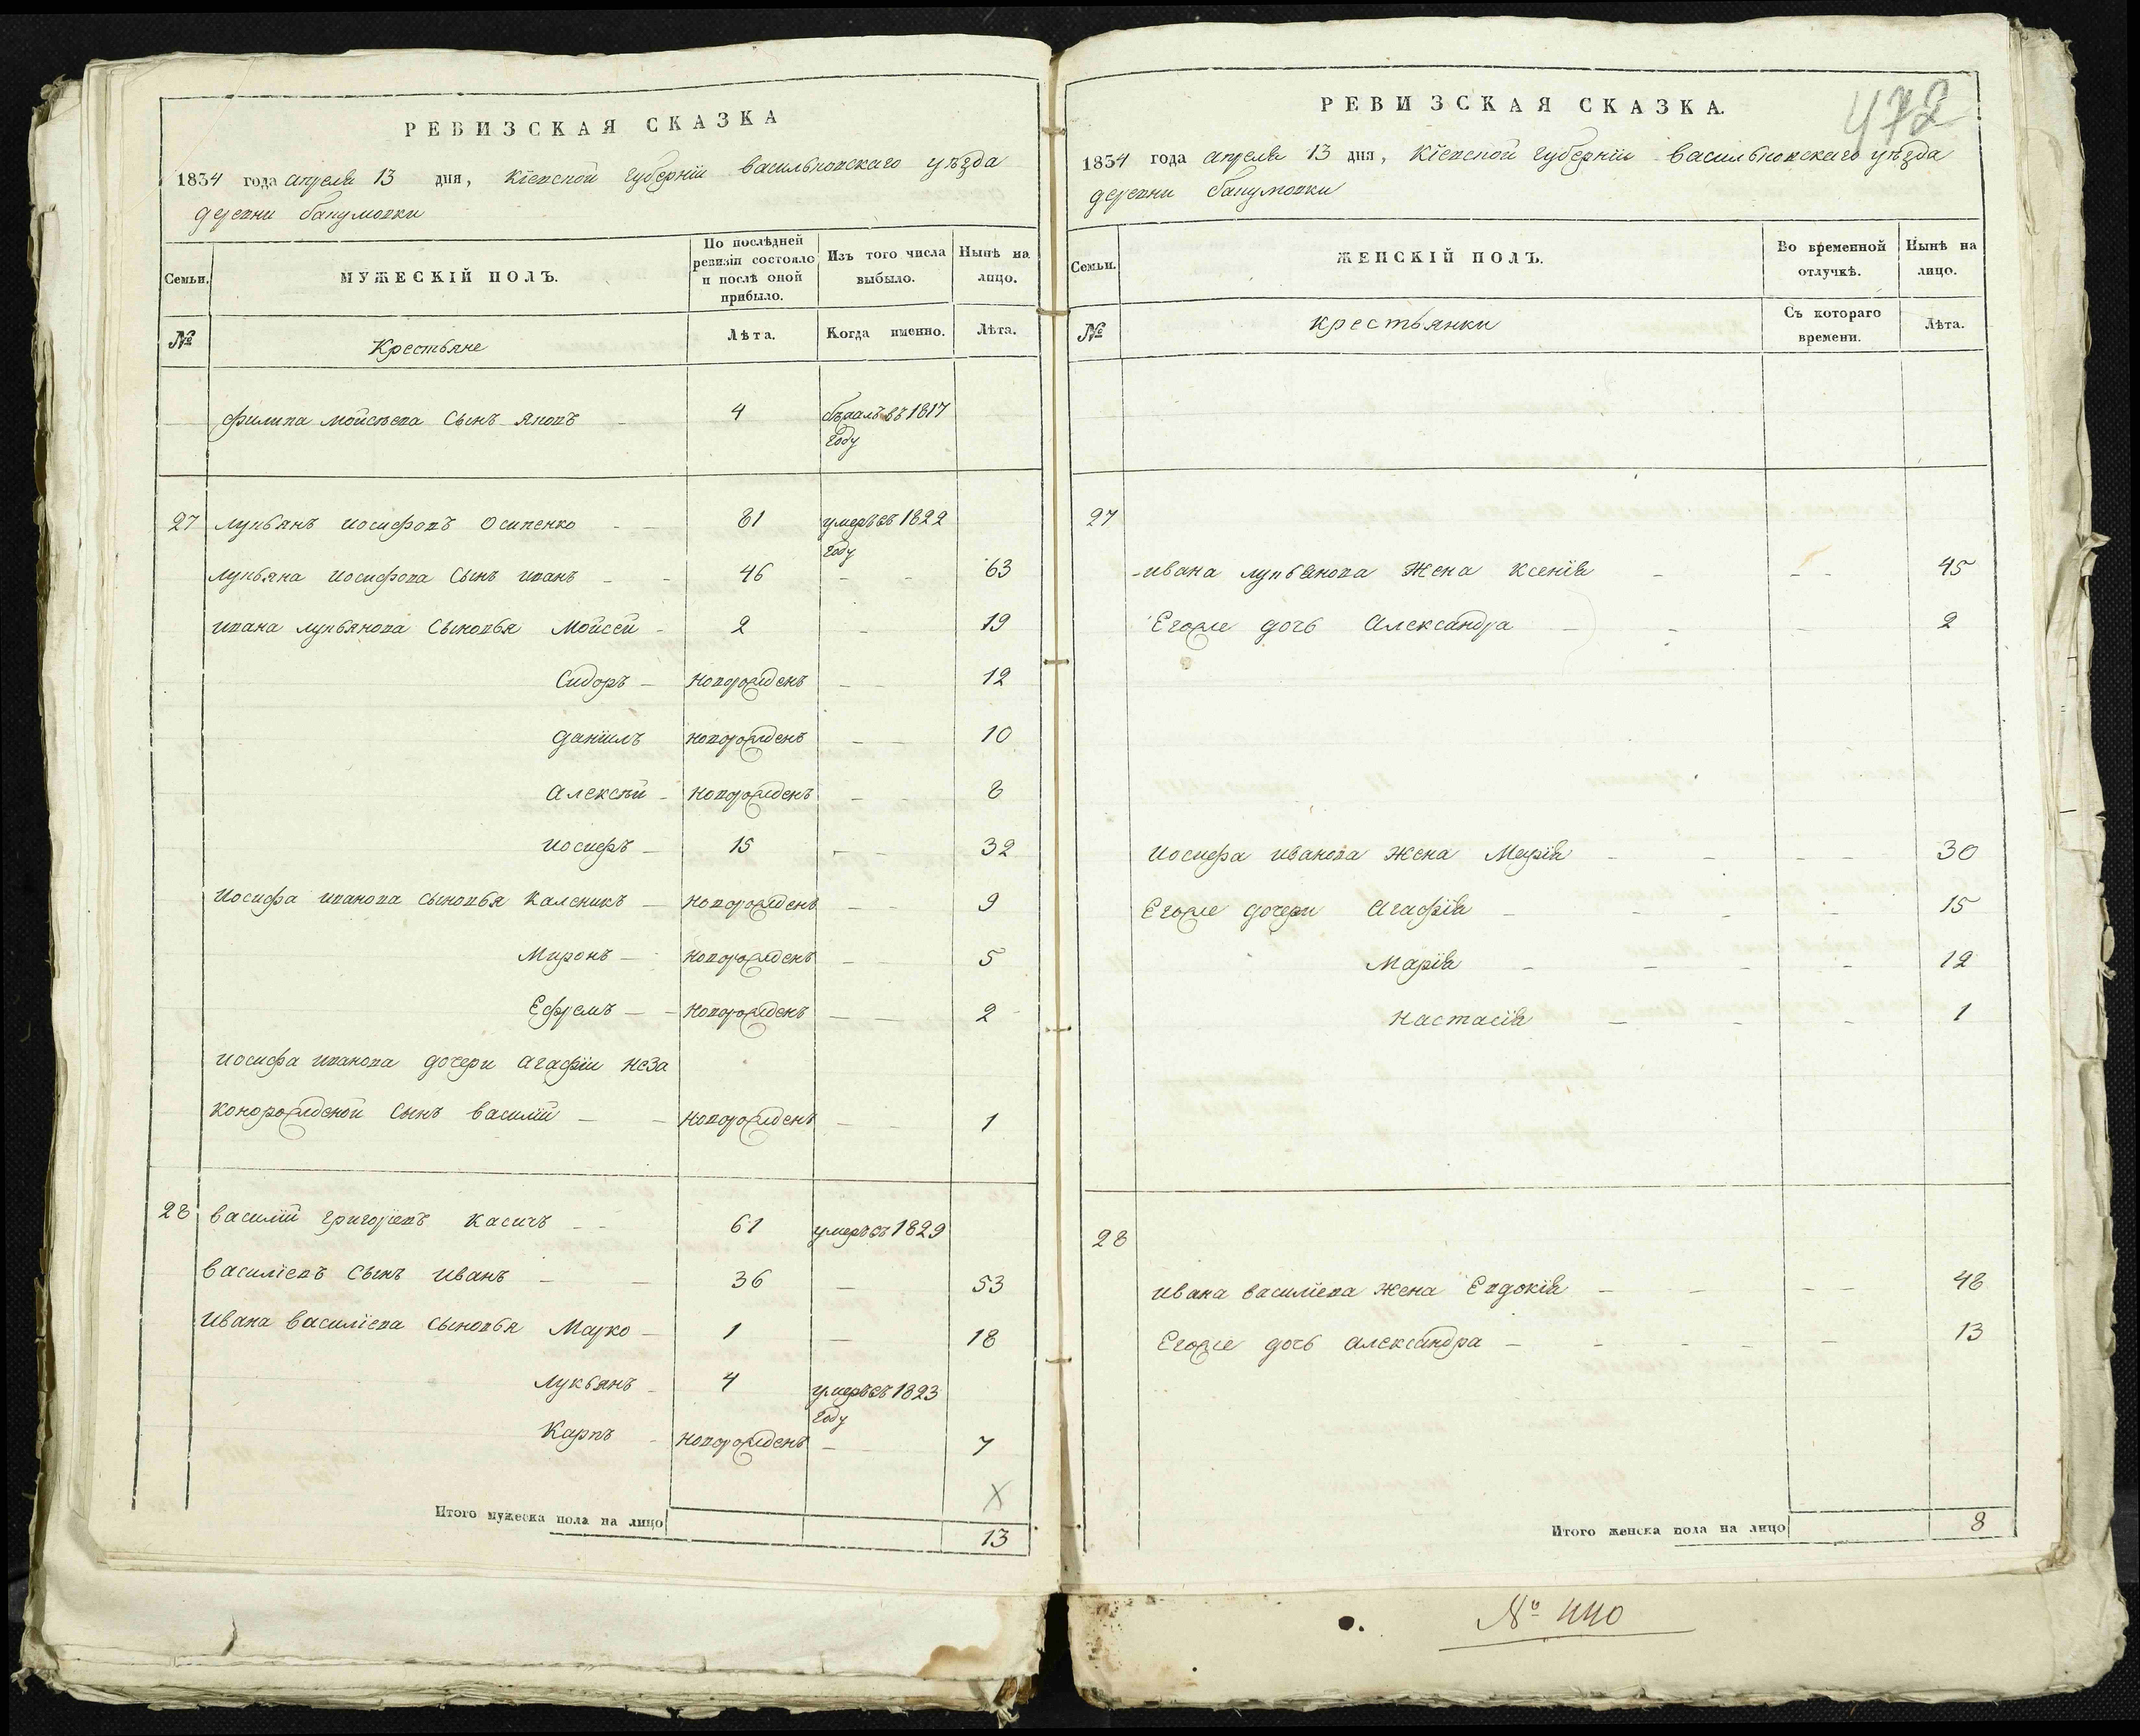 РЕВИЗСКАЯ СКАЗКА
1834 года апреля 13 дня, Кіевской губерніи васильковскаго уѣзда
деревни
Семьи.
МУЖЕСКІЙ ПОЛЪ.
По послѣдней ревизіи состояло и послѣ оной прибыло.
Изъ того числа выбыло.
Нынѣ на лицо.
№
Крестьяне
Лѣта.
Когда именно.
Лѣта.
Филипа мойсѣева Сынъ Яковъ 4 бѣжалъ въ 1817
году
27 лукьянъ иосифовъ Осипенко 81 умеръ въ 1822
году
лукьяна иосифова Сынъ иванъ 46 63
ивана лукьянова Сыновья Мойсей 2 19
Сидоръ новорожденъ 12
даніилъ новорожденъ 10
Алексѣй новорожденъ 8
иосифъ 15 32
Иосифа иванова Сыновья Калсникъ новорожденъ 9
Миронъ новорожденъ 5
Ефремъ новорожденъ 2
иосифа иванова дочери Агафіи неза
конорожденой Сынъ василій новорожденъ 1
28 василій григоріевъ Касичъ 61 умеръ въ 1829
василіевъ Сынъ иванъ 36 53
ивана василіева Сыновья Марко 1 18
Лукьянъ 4 умеръ въ 1823
году
Карпъ новорожденъ 7
Итого мужеска пола на лицо 13
РЕВИЗСКАЯ СКАЗКА.
472
1834 года апреля 13 дня, Кіевской губерніи васильковскаго уѣзда
деревни
Семьи.
ЖЕНСКІЙ ПОЛЪ.
Во временной отлучкѣ.
Нынѣ на лицо.
№
крестьянки
Съ котораго времени.
Лѣта.
27
ивана лукьянова Жена Ксенія 45
Егоже дочь Александра 2
Иосифа иванова Жена Марія 30
Егоже дочери Агафія 15
Марія 12
Настасія 1
28
ивана василіева Жена Евдокія 48
Егоже дочь александра 13
Итого женска пола на лицо 8
№ 440